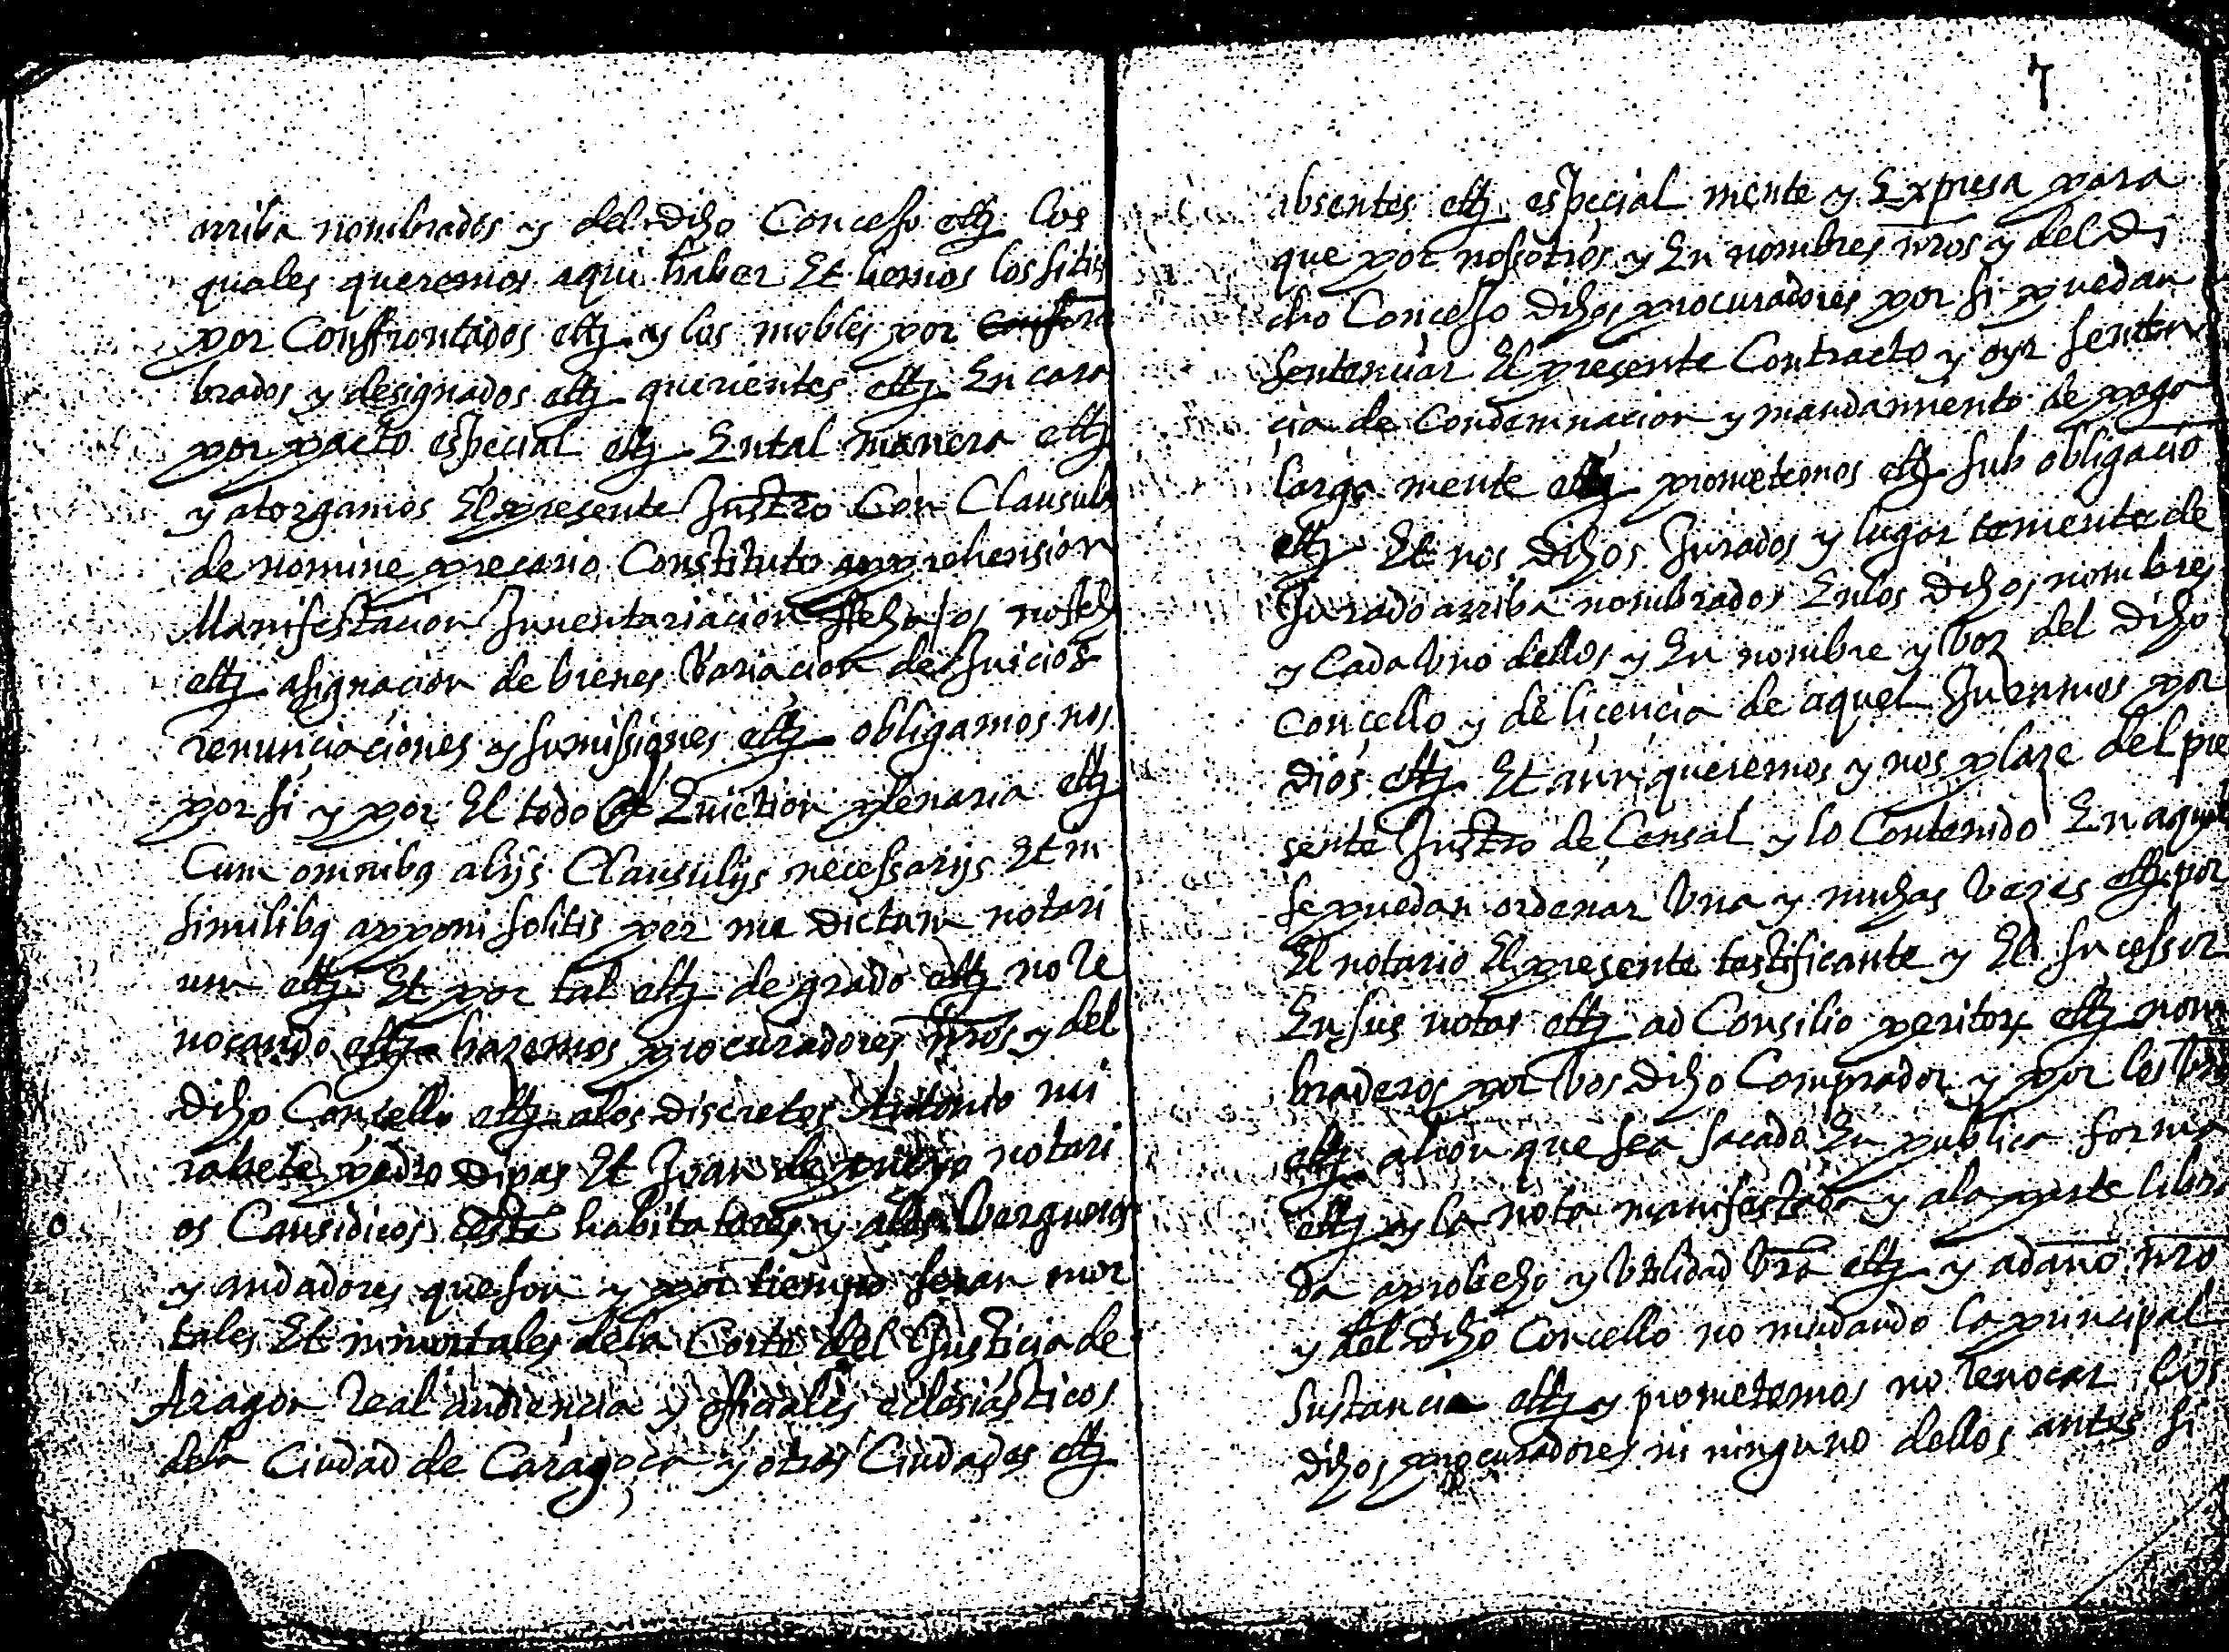 arriba nombrados y del dicho Concejo ettz los
quales queremos aqui haber Et hemos los sitios
por Conffrontados ettz y los mobles por
brados y designados ettz querientes ettz En cara
por pacto especial ettz En tal manera ettz
y atorgamos El presente Instro Con Clausulas
de nomine precario Constituto apprehension
Manifestacion Inventariacion
ettz asignacion de bienes Variacion de Juicios
renunciaciones y sumisiones ettz obligamos nos
por si y por El todo Eviction plenaria ettz
Cum omnibq alijs Clausulijs necessarijs Et in
similibq apponi solitis per me dictam notari
um ettz Et por tal ettz de grado ettz no Re
vocando ettz hazemos procuradores nros y del
dicho Concello ettz a los discretos Antonio mi
rabete pedro dipas Et Joan de pueyo notari
os Causidicos habitatores y a los Vergueros
y andadores que son y por tiempo seran mor
tales Et inmortales de la Corte del Justicia de
Aragon Real audiencia y officiales eclesiasticos
de la Ciudad de Caragoça y otras Ciudades ettz
7
absentes ettz especial mente y Expresa para
que por nosotros y En nombres nros y del di
cho Concejo dichos procuradores por si puedan
sentenciar El presente Contracto y oyr senten
cia de Condemnacion y mandamiento de paga
larga mente ettz prometemos ettz sub obligacio
ettz Et nos dichos Jurados y lugar teniente de
Jurado arriba nombrados En los dichos nombres
y Cada Vno dellos y En nombre y Voz del dicho
Concello y de licencia de aquel Juramos por
dios ettz Et aun queremos y nos plaze del pre
sente Instro de Censal y lo Contenido En aquel
se puedan ordenar Vna y muchas Vezes ettz por
El notario El presente testificante y El sucessor
En sus notas ettz ad Consilio peritor ettz nom
braderos por Vos dicho Comprador y por los Vros
ettz ahon que sea sacado En publica forma
ettz y la nota manifestada y a la parte libra
da a probecho y Vtilidad Vra ettz y a dano nro
y del dicho Concello no mudando la principal
sustancia ettz y prometemos no Revocar los
dichos procuradores ni ninguno dellos antes si